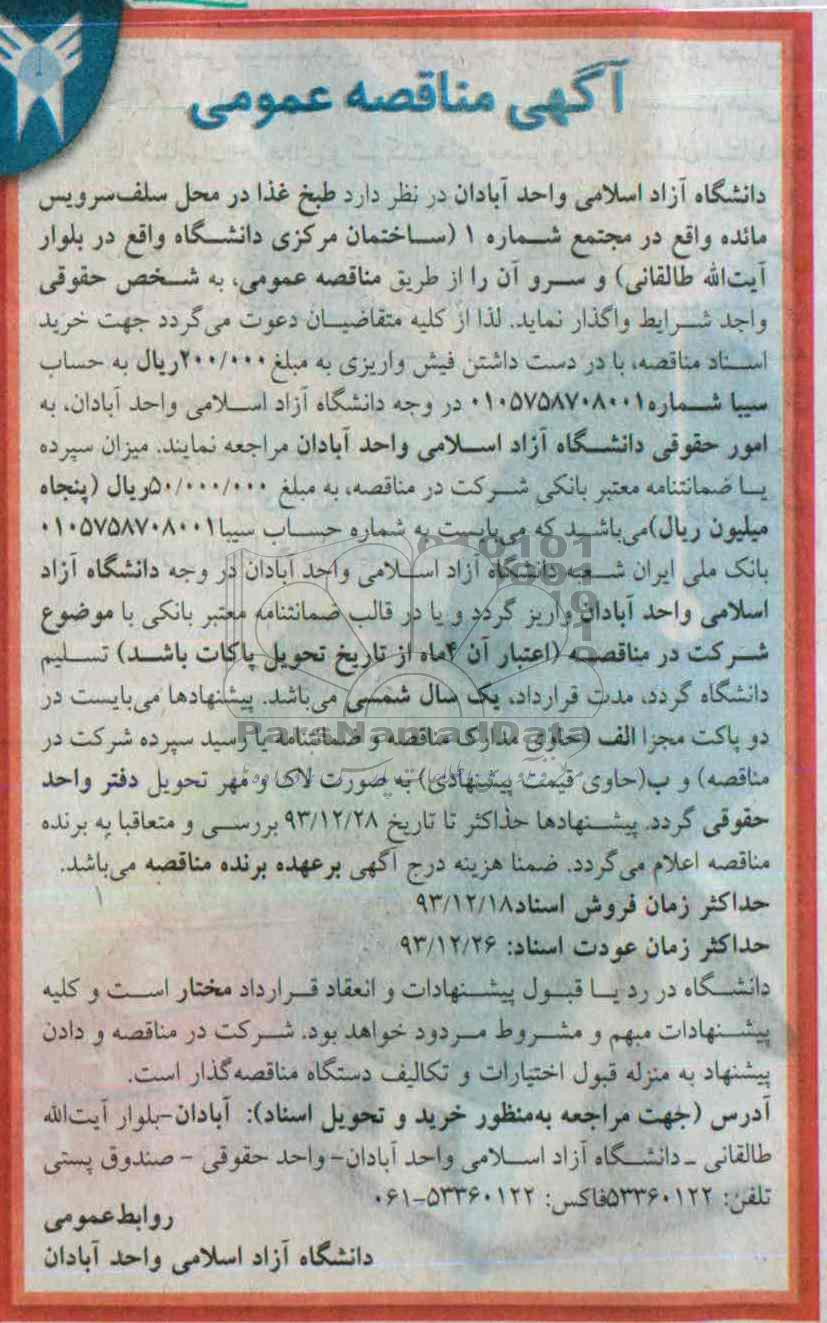 آگهی مناقصه عمومی
دانشگاه آزاد اسلامی واحد آبادان در نظر دارد طبخ غذا در محل سلف‌سرویس
مائده واقع در مجتمع شماره ۱ (ساختمان مرکزی دانشگاه واقع در بلوار
آیت‌الله طالقانی) و سرو آن را از طریق مناقصه عمومی، به شخص حقوقی
واجد شرایط واگذار نماید. لذا از کلیه متقاضیان دعوت می‌گردد جهت خرید
اسناد مناقصه، با در دست داشتن فیش واریزی به مبلغ ۲۰۰/۰۰۰ریال به حساب
سیبا شماره۰۱۰۵۷۵۸۷۰۸۰۰۱ در وجه دانشگاه آزاد اسلامی واحد آبادان، به
امور حقوقی دانشگاه آزاد اسلامی واحد آبادان مراجعه نمایند. میزان سپرده
یا ضمانتنامه معتبر بانکی شرکت در مناقصه، به مبلغ ۵۰/۰۰۰/۰۰۰ریال (پنجاه
میلیون ریال)می‌باشد که می‌بایست به شماره حساب سیبا۰۱۰۵۷۵۸۷۰۸۰۰۱
بانک ملی ایران شعبه دانشگاه آزاد اسلامی واحد آبادان در وجه دانشگاه آزاد
اسلامی واحد آبادان واریز گردد و یا در قالب ضمانتنامه معتبر بانکی با موضوع
شرکت در مناقصه (اعتبار آن ۴ماه از تاریخ تحویل پاکات باشد) تسلیم
دانشگاه گردد، مدت قرارداد، یک سال شمسی می‌باشد. پیشنهادها می‌بایست در
دو پاکت مجزا الف (حاوی مدارک مناقصه و ضمانتنامه یا رسید سپرده شرکت در
مناقصه) و ب(حاوی قیمت پیشنهادی) به صورت لاک و مهر تحویل دفتر واحد
حقوقی گردد. پیشنهادها حداکثر تا تاریخ ۹۳/۱۲/۲۸ بررسی و متعاقبا به برنده
مناقصه اعلام می‌گردد. ضمنا هزینه درج آگهی برعهده برنده مناقصه می‌باشد.
حداکثر زمان فروش اسناد۹۳/۱۲/۱۸
حداکثر زمان عودت اسناد: ۹۳/۱۲/۲۶
دانشگاه در رد یا قبول پیشنهادات و انعقاد قرارداد مختار است و کلیه
پیشنهادات مبهم و مشروط مردود خواهد بود. شرکت در مناقصه و دادن
پیشنهاد به منزله قبول اختیارات و تکالیف دستگاه مناقصه‌گذار است.
آدرس (جهت مراجعه به‌منظور خرید و تحویل اسناد): آبادان-بلوار آیت‌الله
طالقانی ـ دانشگاه آزاد اسلامی واحد آبادان- واحد حقوقی - صندوق پستی
تلفن: ۵۳۳۶۰۱۲۲فاکس: ۵۳۳۶۰۱۲۲-۰۶۱
روابط‌عمومی
دانشگاه آزاد اسلامی واحد آبادان
ParsNamadData